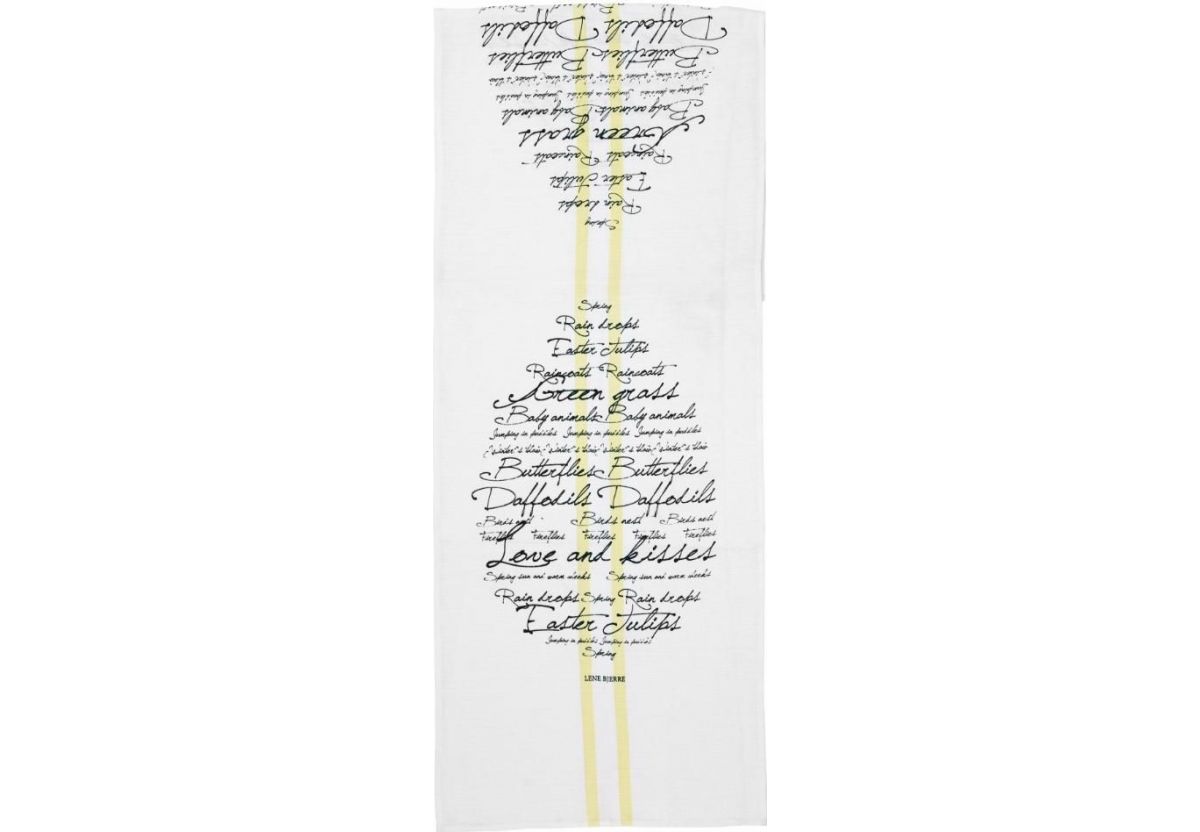 Raincoats Raincoats
Daffodils Daffodils
Butterflies Butterflies
Jumping in puddles Jumping in puddles Jumping in puddles
Baby animals Baby animals
Green grass
Raincoats Raincoats
Easter Tulips
Rain drops
Spring
Spring
Rain drops
Easter Tulips
Raincoats Raincoats
Green grass
Baby animals Baby animals
Jumping in puddles Jumping in puddles Jumping in puddles
Butterflies Butterflies
Daffodils Daffodils
Birds nest Birds nest Birds nest
Fireflies Fireflies Fireflies Fireflies Fireflies
Love and kisses
Spring sun and warm winds Spring sun and warm winds
Rain drops Spring Rain drops
Easter Tulips
Jumping in puddles Jumping in puddles
Spring
LENE BJERRE